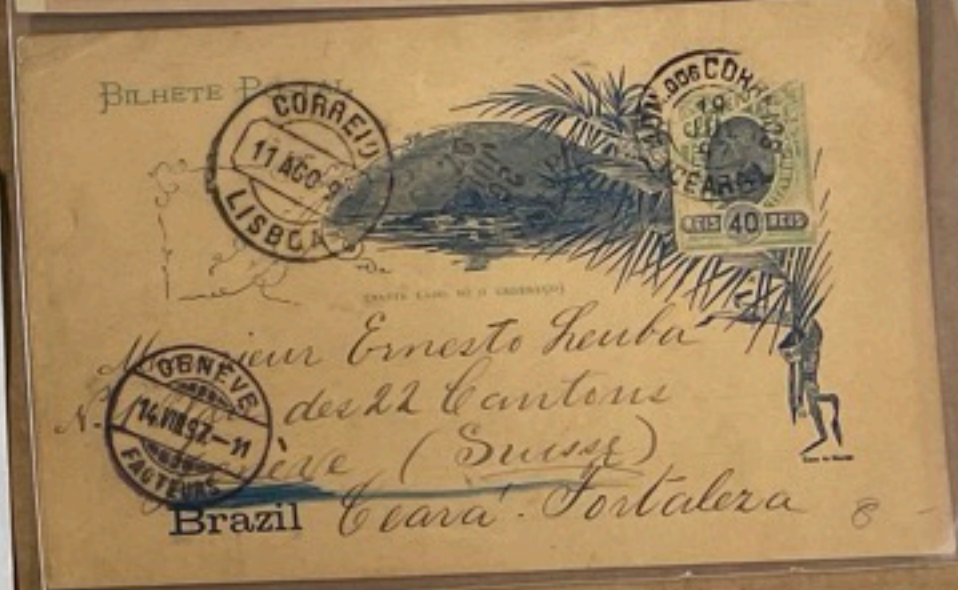 BILHETE POSTAL
CORREIO
11 AGO 9
LISBOA
ADM. DOS CORREIOS
19
JUL
CEARÁ
REIS 40 REIS
(NESTE LADO SÓ O ENDEREÇO)
Monsieur Ernesto Leuba
N. des 22 Cantons
Genève (Suisse)
GENÈVE
14.VIII.97.-11
FACTEURS
Brazil Ceará. Fortaleza
8